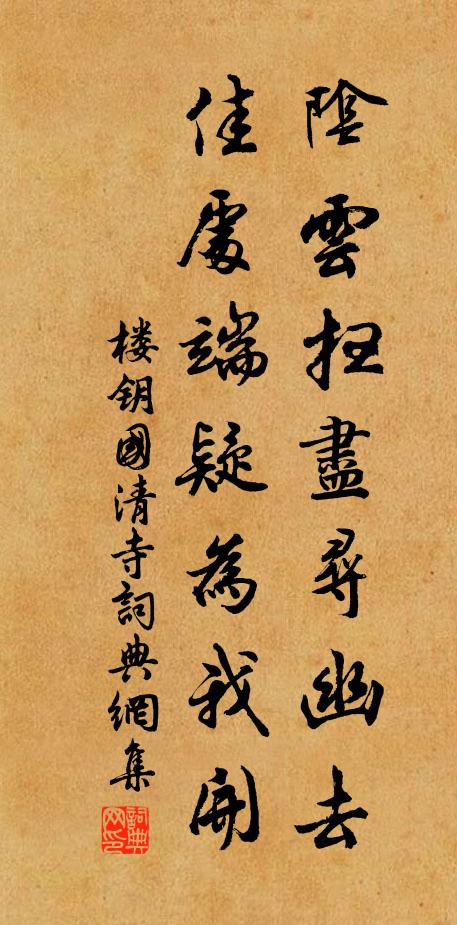 陰雲扫盡尋幽去
佳處端疑為我開
楼钥國清寺詞典網集
詞典网印